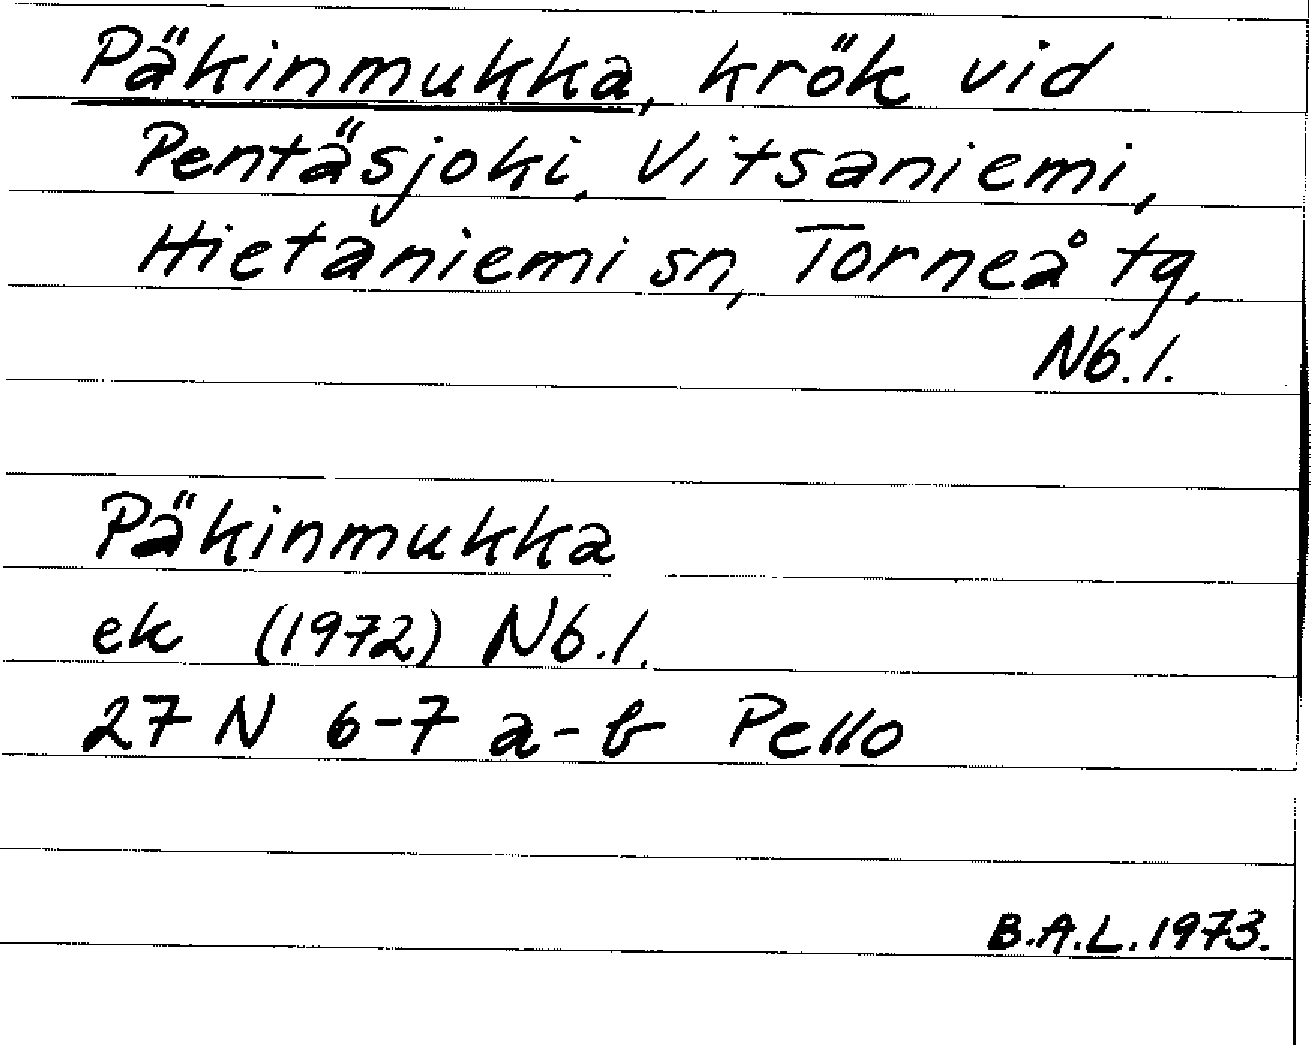 Päkinmukka, krök vid
Pentäsjoki, Vitsaniemi,
Hietaniemi sn, Torneå tg,
Nb.l.
Päkinmukka
ek (1972) Nb.l.
27 N 6-7 a-b Pello
B.A.L. 1973.